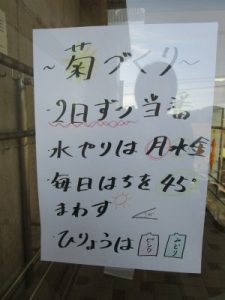 ～菊づくり～
・2日ずつ当番
・水やりは月水金
・毎日はちを45°
まわす
・ひりょうは みどり